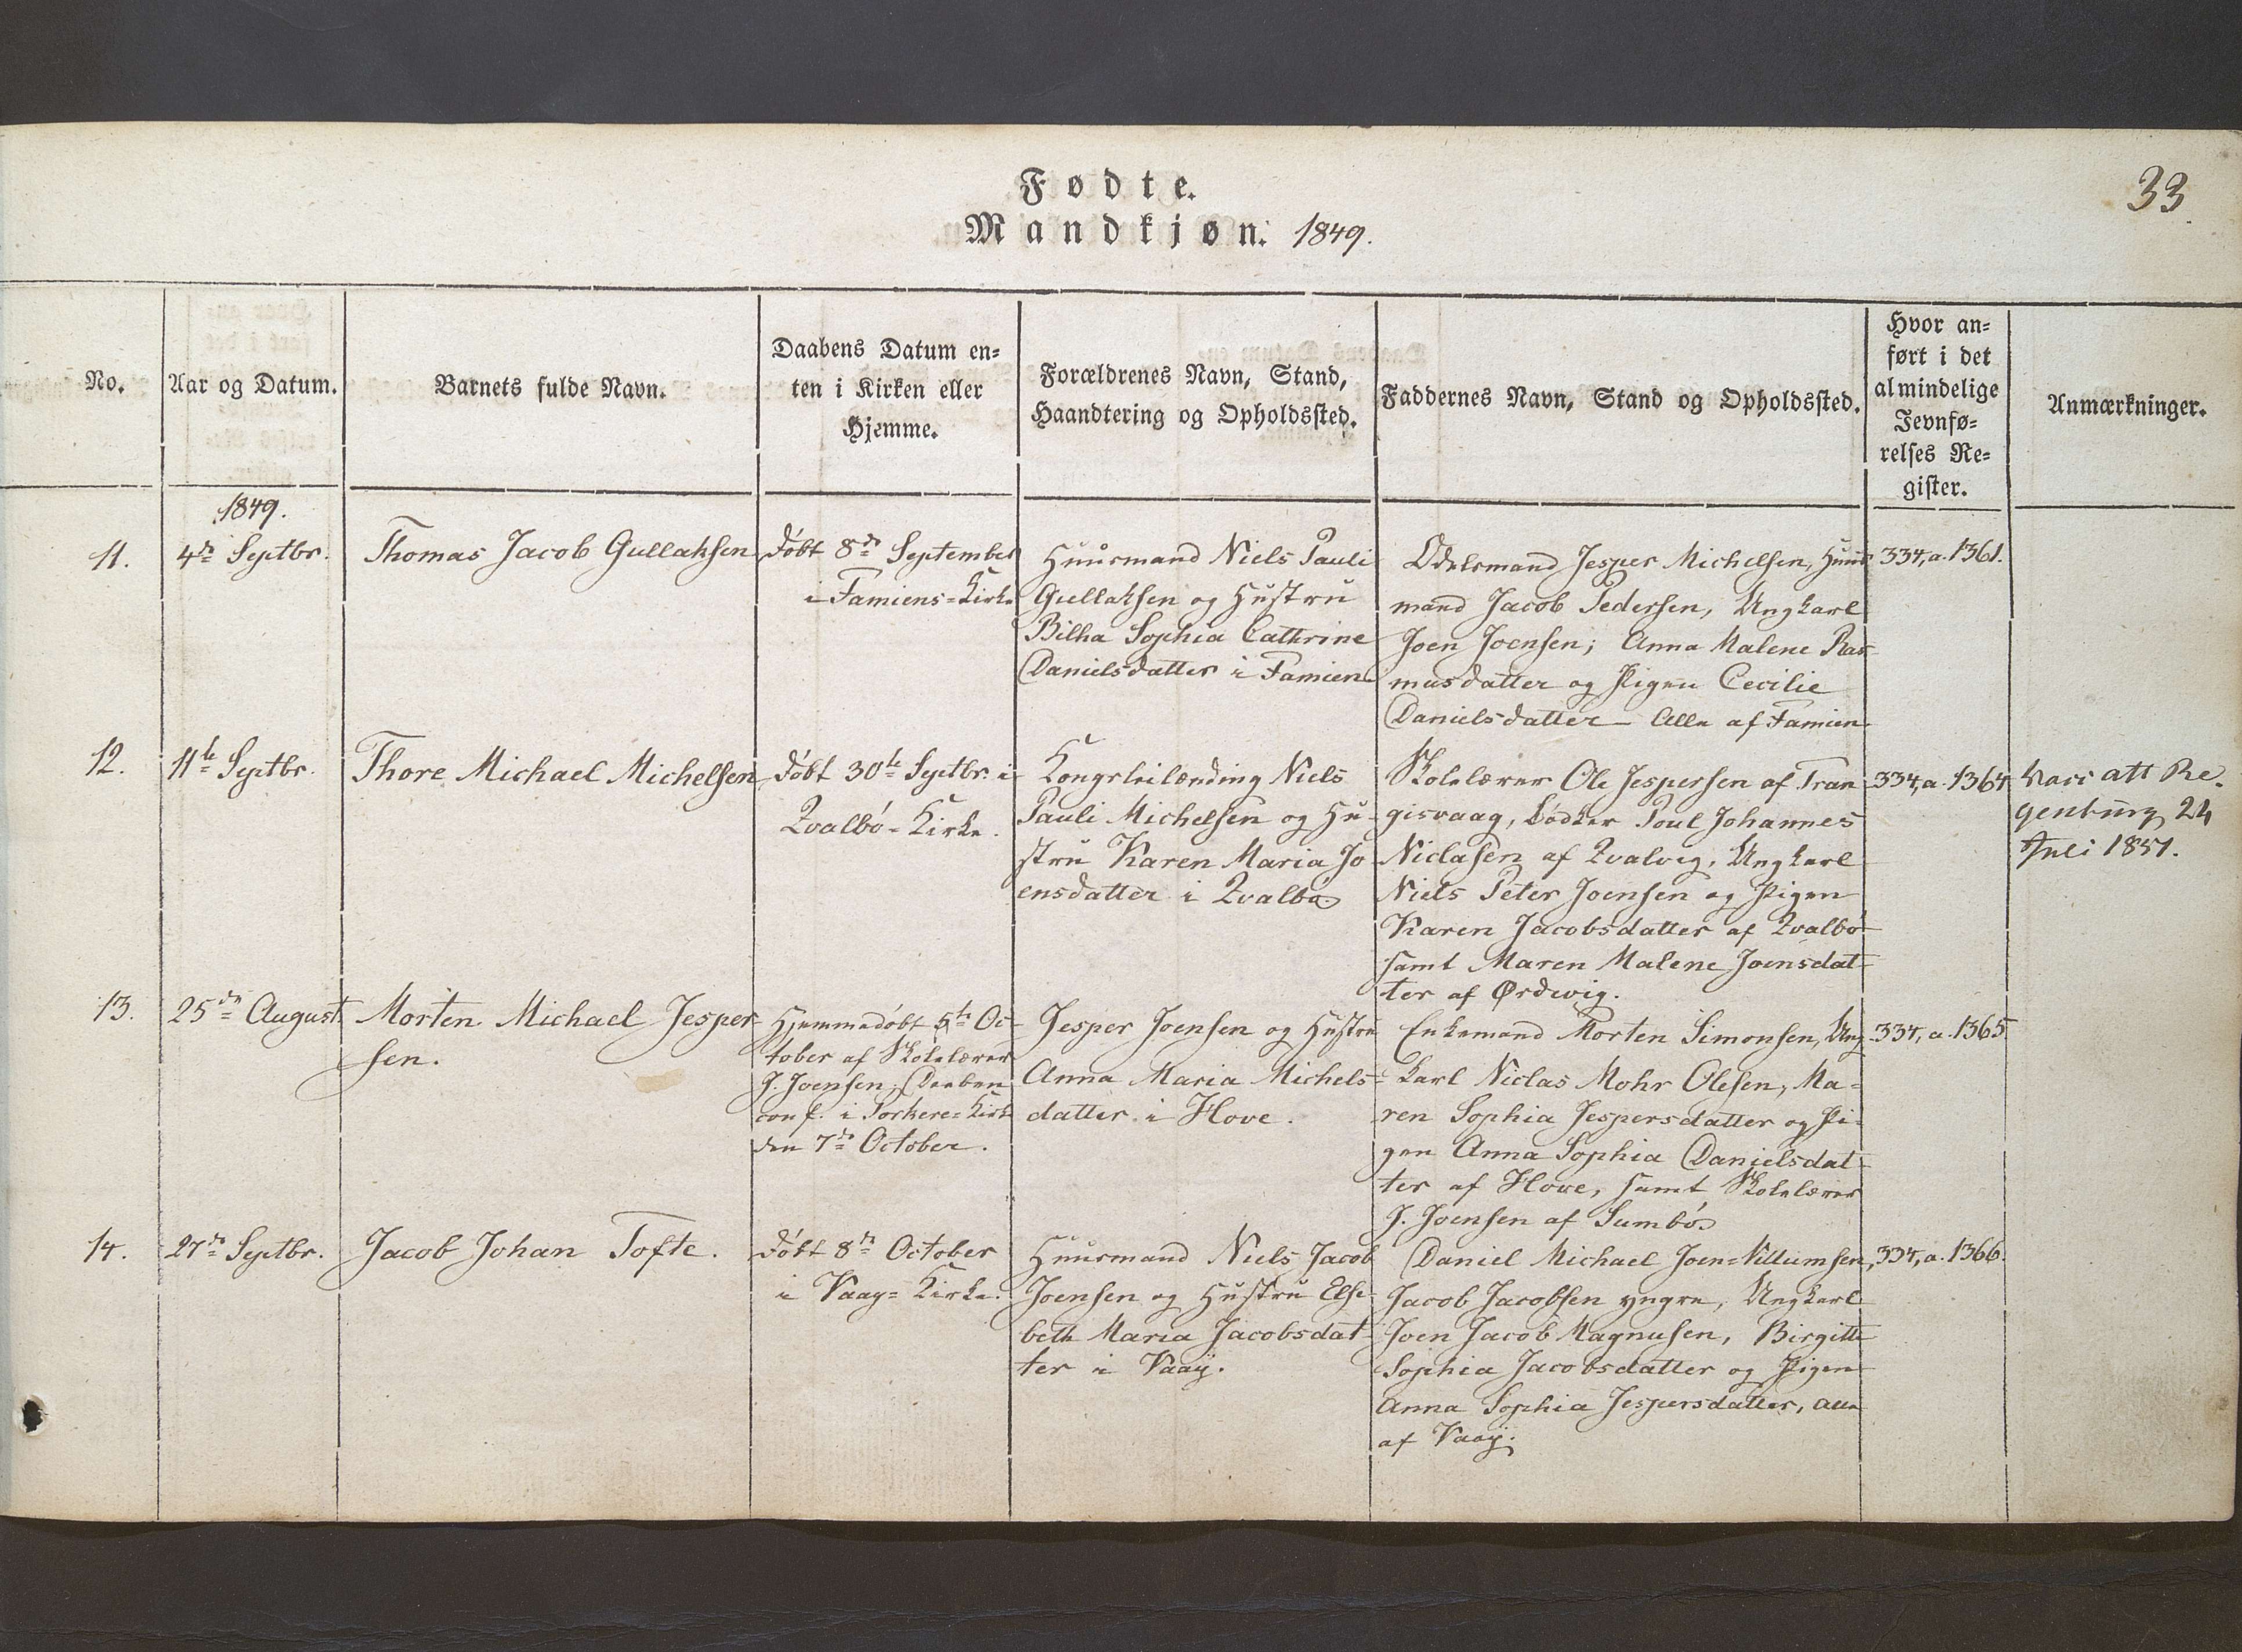 Fødte.
Mandkjøn. 1849.
33.
No.
Aar og Datum.
Barnets fulde Navn.
Daabens Datum en-
ten i Kirken eller
Hjemme.
Forældrenes Navn, Stand,
Haandtering og Opholdssted.
Faddernes Navn, Stand og Opholdssted.
Hvor an-
ført i det
almindelige
Jevnfø-
relses Re-
gister.
Anmærkninger.
1849.
11.
4de Septbr.
Thomas Jacob Gullaksen
døbt 8de September
i Famiens-Kirke
Huusmand Niels Pauli
Gullaksen og Hustru
Bilha Sophia Cathrine
Danielsdatter i Famien
Odelsmand Jesper Michelsen, Huus
mand Jacob Pedersen, Ungkarl
Joen Joensen; Anna Malene Ras-
musdatter og Pigen Cecilie
Danielsdatter - Alle af Famien
334, a. 1361.
12.
11te Septbr.
Thore Michael Michelsen
døbt 30te Septbr. i
Qvalbø-Kirke.
Kongsleilænding Niels
Pauli Michelsen og Hu-
stru Karen Maria Jo
ensdatter i Qvalbø
Skolelærer Ole Jespersen af Tran
gisvaag, Bødker Poul Johannes
Niclasen af Qvalvig, Ungkarl
Niels Peter Joensen og Pigen
Karen Jacobsdatter af Qvalbø
samt Maren Malene Joensdat-
ter af Ørdevig.
334, a. 1364
att Re.
24
Juli 1857.
13.
25de August
Morten Michael Jesper-
sen.
Hjemmedøbt 5te Oc-
tober af Skolelærer
J. Joensen; Daaben
conf. i Porkere-Kirke
den 7de October.
Jesper Joensen og Hustru
Anna Maria Michels-
datter i Hove.
Enkemand Morten Simonsen, Ung
karl Niclas Mohr Olesen, Ma-
ren Sophia Jespersdatter og Pi-
gen Anna Sophia Danielsdat-
ter af Hove, samt Skolelærer
J. Joensen af Sumbø
334, a. 1365
14.
27de Septbr.
Jacob Johan Tofte.
døbt 8de October
i Vaag-Kirke.
Huusmand Niels Jacob
Joensen og Hustru Else
beth Maria Jacobsdat-
ter i Vaag.
Daniel Michael Joen-Villumsen,
Jacob Jacobsen yngre, Ungkarl
Joen Jacob Magnusen, Birgitte
Sophia Jacobsdatter og Pigen
Anna Sophia Jespersdatter, alle
af Vaag.
334, a. 1366.